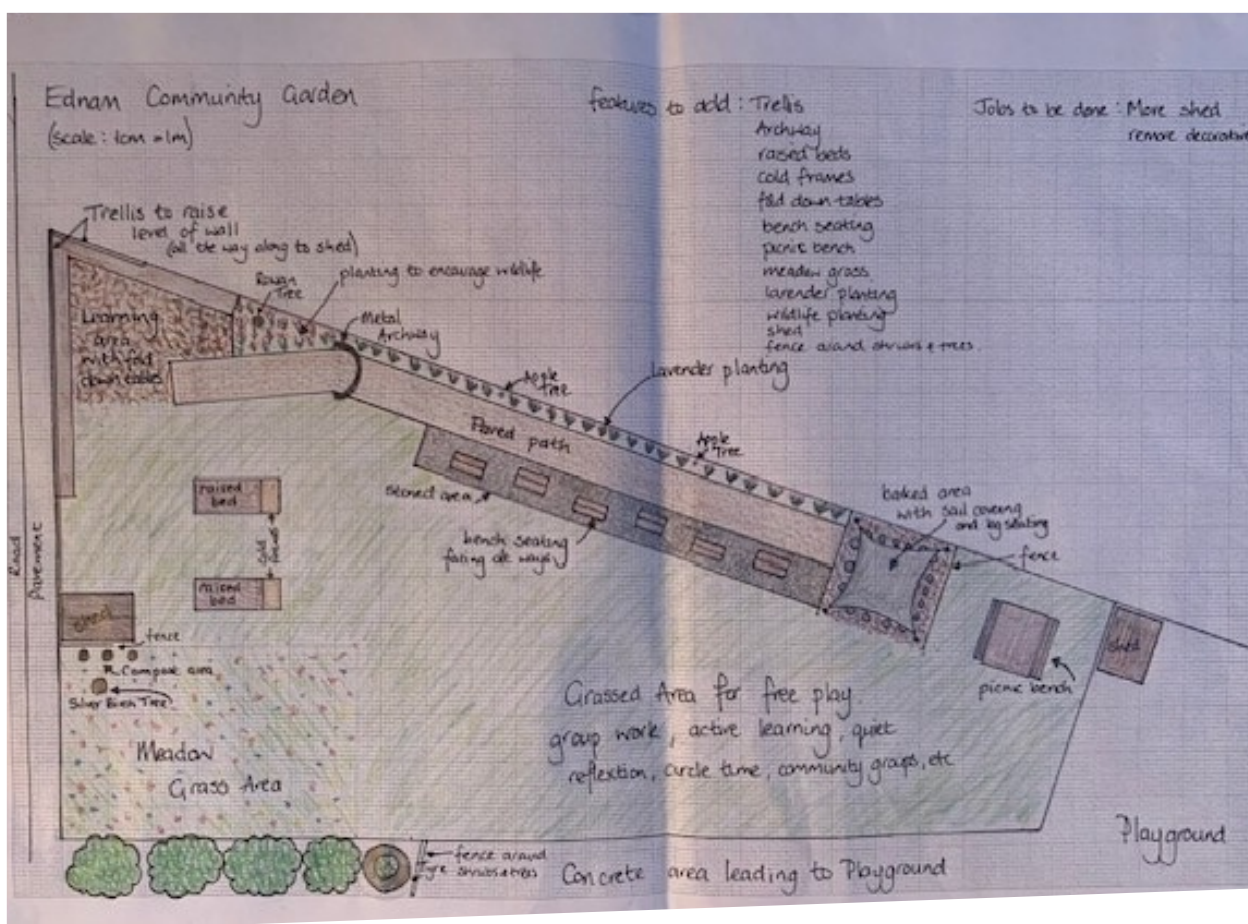 Ednam Community Garden
(scale: 1cm = 1m)
features to add: Trellis
Archway
raised beds
cold frames
fold down tables
bench seating
picnic bench
meadow grass
lavender planting
wildlife planting
shed
fence around shrubs + trees.
Jobs to be done: Move shed
remove decorative
Trellis to raise
level of wall
(all the way along to shed)
Rowan
Tree
planting to encourage wildlife
Metal
Archway
Learning
area
with fold
down tables
Apple
Tree
lavender planting
Paved path
Apple
Tree
stoned area
bench seating
facing
ways
raised
bed
cold
frames
raised
bed
area
with sail covering
and log seating
fence
Road
Pavement
shed
fence
Compost area
Silver Birch Tree
Meadow
Grass Area
Grassed Area for free play.
group work, active learning, quiet
reflextion, circle time, community groups, etc
picnic bench
shed
fence around
shrubs + trees
Tyre
Concrete area leading to Playground
Playground